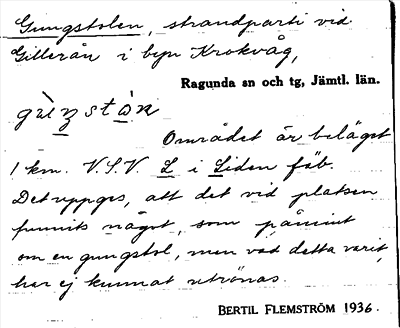 Gungstolen, strandparti vid
Gillerån i byn Krokvåg,
Ragunda sn och tg, Jämtl. län.
Området är beläget
1 km. V.S.V. L i Liden fäb.
Det uppges, att det vid platsen
funnits något, som påmint
om en gungstol, men vad detta varit,
har ej kunnat utrönas.
BERTIL FLEMSTRÖM 1936.